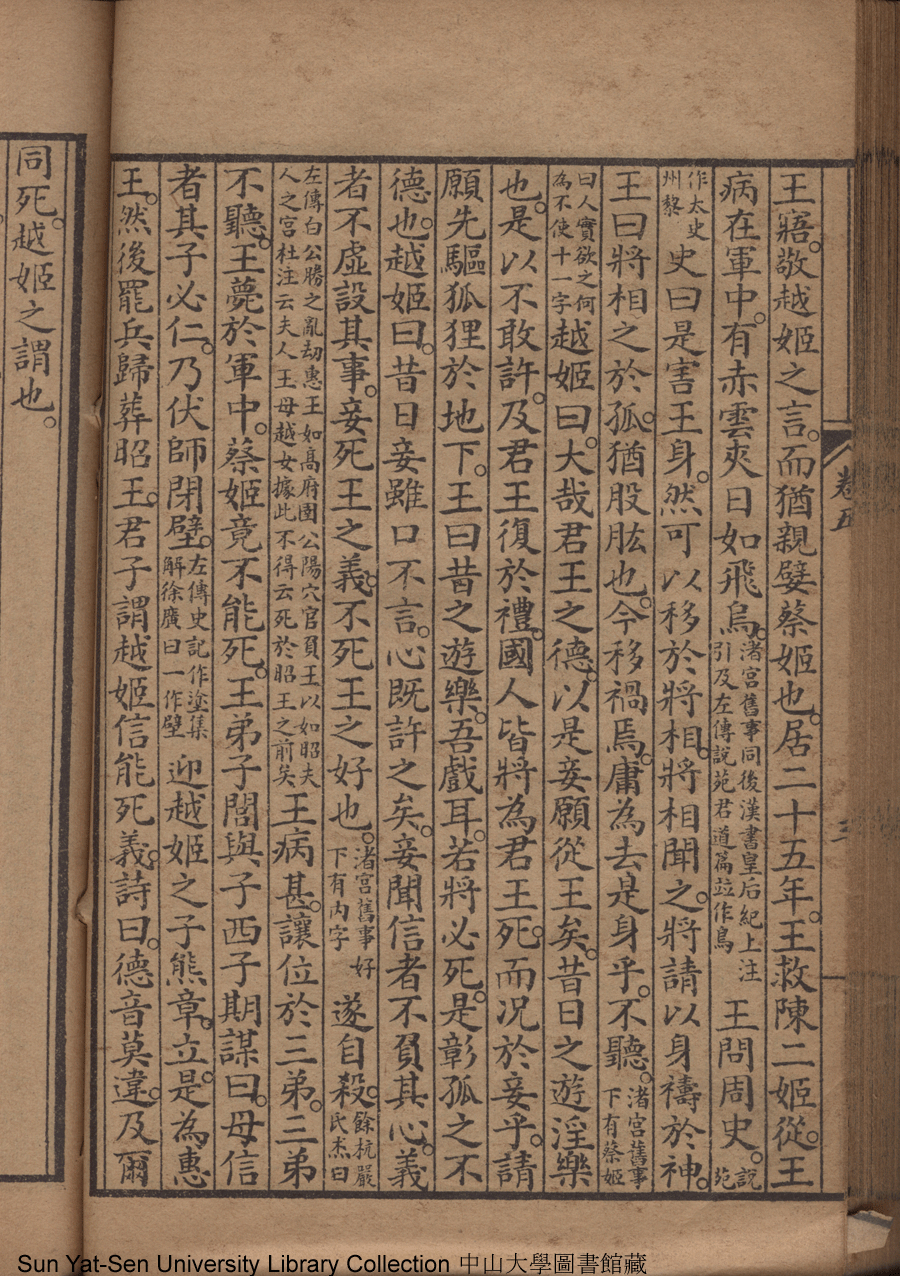 卷五
三
王寤。敬越姬之言。而猶親嬖蔡姬也。居二十五年。王救陳二姬從。王
病在軍中。有赤雲夾日如飛烏。渚宮舊事同後漢書皇后紀上注引及左傳說苑君道篇竝作鳥王問周史。說苑
作太史州黎史曰是害王身。然可以移於將相。將相聞之。將請以身禱於神。
王曰將相之於孤。猶股肱也。今移禍焉。庸為去是身乎。不聽。渚宮舊事下有蔡姬
曰人實欲之何為不使十一字越姬曰。大哉君王之德。以是妾願從王矣。昔日之遊淫樂
也。是以不敢許。及君王復於禮。國人皆將為君王死。而况於妾乎。請
願先驅狐狸於地下。王曰昔之遊樂。吾戲耳。若將必死。是彰孤之不
德也。越姬曰。昔日妾雖口不言。心既許之矣。妾聞信者不負其心。義
者不虛設其事。妾死王之義。不死王之好也。渚宮舊事好下有內字遂自殺。餘杭嚴氏杰曰
左傳白公勝之亂劫惠王如高府圉公陽穴宮負王以如昭夫人之宮杜注云夫人王母越女據此不得云死於昭王之前矣王病甚。讓位於三弟。三弟
不聽。王薨於軍中。蔡姬竟不能死。王弟子閭與子西子期謀曰。母信
者其子必仁。乃伏師閉壁。左傳史記作塗集解徐廣曰一作壁迎越姬之子熊章。立是為惠
王。然後罷兵歸葬昭王。君子謂越姬信能死義。詩曰。德音莫違。及爾
同死。越姬之謂也。
Sun Yat-Sen University Library Collection 中山大學圖書館藏